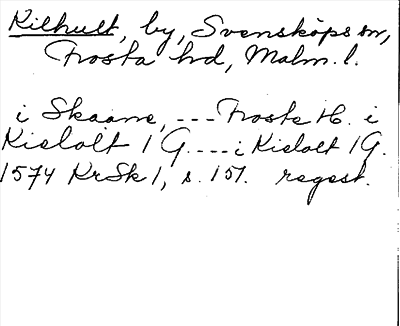 Kilhult, by, Svensköps sn,
Frosta hd, Malm. l.
i Skaane, --- Frosts H. i
Kielolt 1 G. ---- i Kielolt 1 G.
1574 KrSk 1, s. 151. regest.